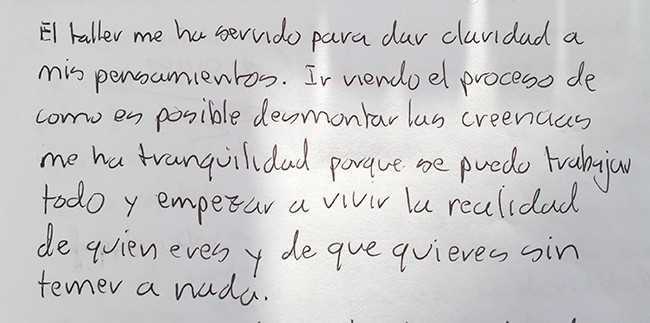 El taller me ha servido para dar claridad a
mis pensamientos. Ir viendo el proceso de
como es posible desmontar las creencias
me ha tranquilidad porque se puedo trabajar
todo y empezar a vivir la realidad
de quien eres y de que quieres sin
temer a nada.